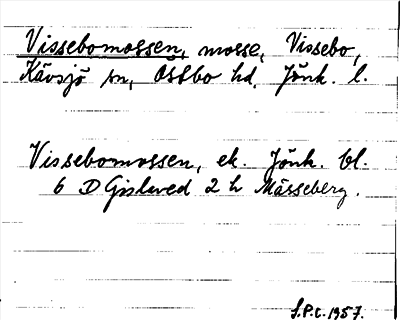 Vissebomossen, mosse, Vissebo,
Kävsjö sn, Östbo hd. Jönk. l.
Vissebomossen, ek. Jönk. bl.
6 D Gislaved 2 h Mässeberg.
S.P.C. 1957.